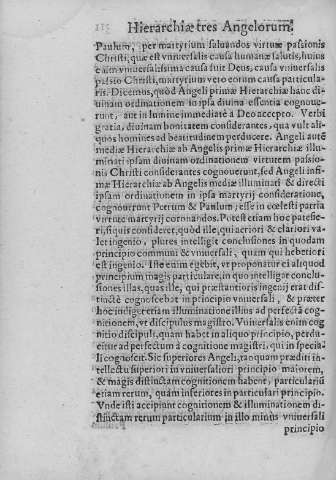 Hierarchiæ tres Angelorum.
Paulum, per martyrium saluandos virtute passionis
Christi, quæ est vniuersalis causa humanæ salutis, huius
enim vniuersalissima causa fuit Deus, causa vniuersalis
passio Christi, martyrium vero eorum causa particula-
ris. Dicemus, quòd Angeli primæ Hierarchiæ hanc di-
uinam ordinationem in ipsa diuina essentia cognoue-
runt, aut in lumine immediatè à Deo accepto. Verbi
gratia, diuinam bonitatem considerantes, qua vult ali-
quos homines ad beatitudinem perducere. Angeli autē
mediæ Hierarchiæ ab Angelis primæ Hierarchiæ illu-
minati ipsam diuinam ordinationem virtutem passio-
nis Christi considerantes cognouerunt, sed Angeli infi-
mæ Hierarchiæ ab Angelis mediæ illuminati & directi
ipsam ordinationem in ipsa martyrij consideratione,
cognouerunt Petrum & Paulum, esse in cœlesti patria
virtute martyrij coronandos. Potest etiam hoc patefie-
ri, si quis consideret, quòd ille, qui acriori & clariori va-
let ingenio, plures intelligit conclusiones in quodam
principio communi & vniuersali, quam qui hebetiori
est ingenio. Iste enim egebit, vt proponatur ei aliquod
principium magis particulare, in quo intelligat conclu-
siones illas, quas ille, qui præstantioris ingenij, & erat dis-
tinctè cognoscebat in principio vniuersali, & præter
hoc indiget etiam illuminatione illius ad perfectā cog-
nitionem, vt discipulus magistro. Vniuersalis enim cog
nitio discipuli, quam habet in aliquo principio, perdu-
citur ad perfectum à cognitione magistri, qui in specia-
li cognoscit. Sic superiores Angeli, tanquam præditi in-
tellectu superiori in vniuersaliori principio maiorem,
& magis distinctam cognitionem habent, particulariū
etiam rerum, quàm inferiores in particulari principio.
Vnde isti accipiunt cognitionem & illuminationem di-
stinctam rerum particularium in illo minus vniuersali
principio